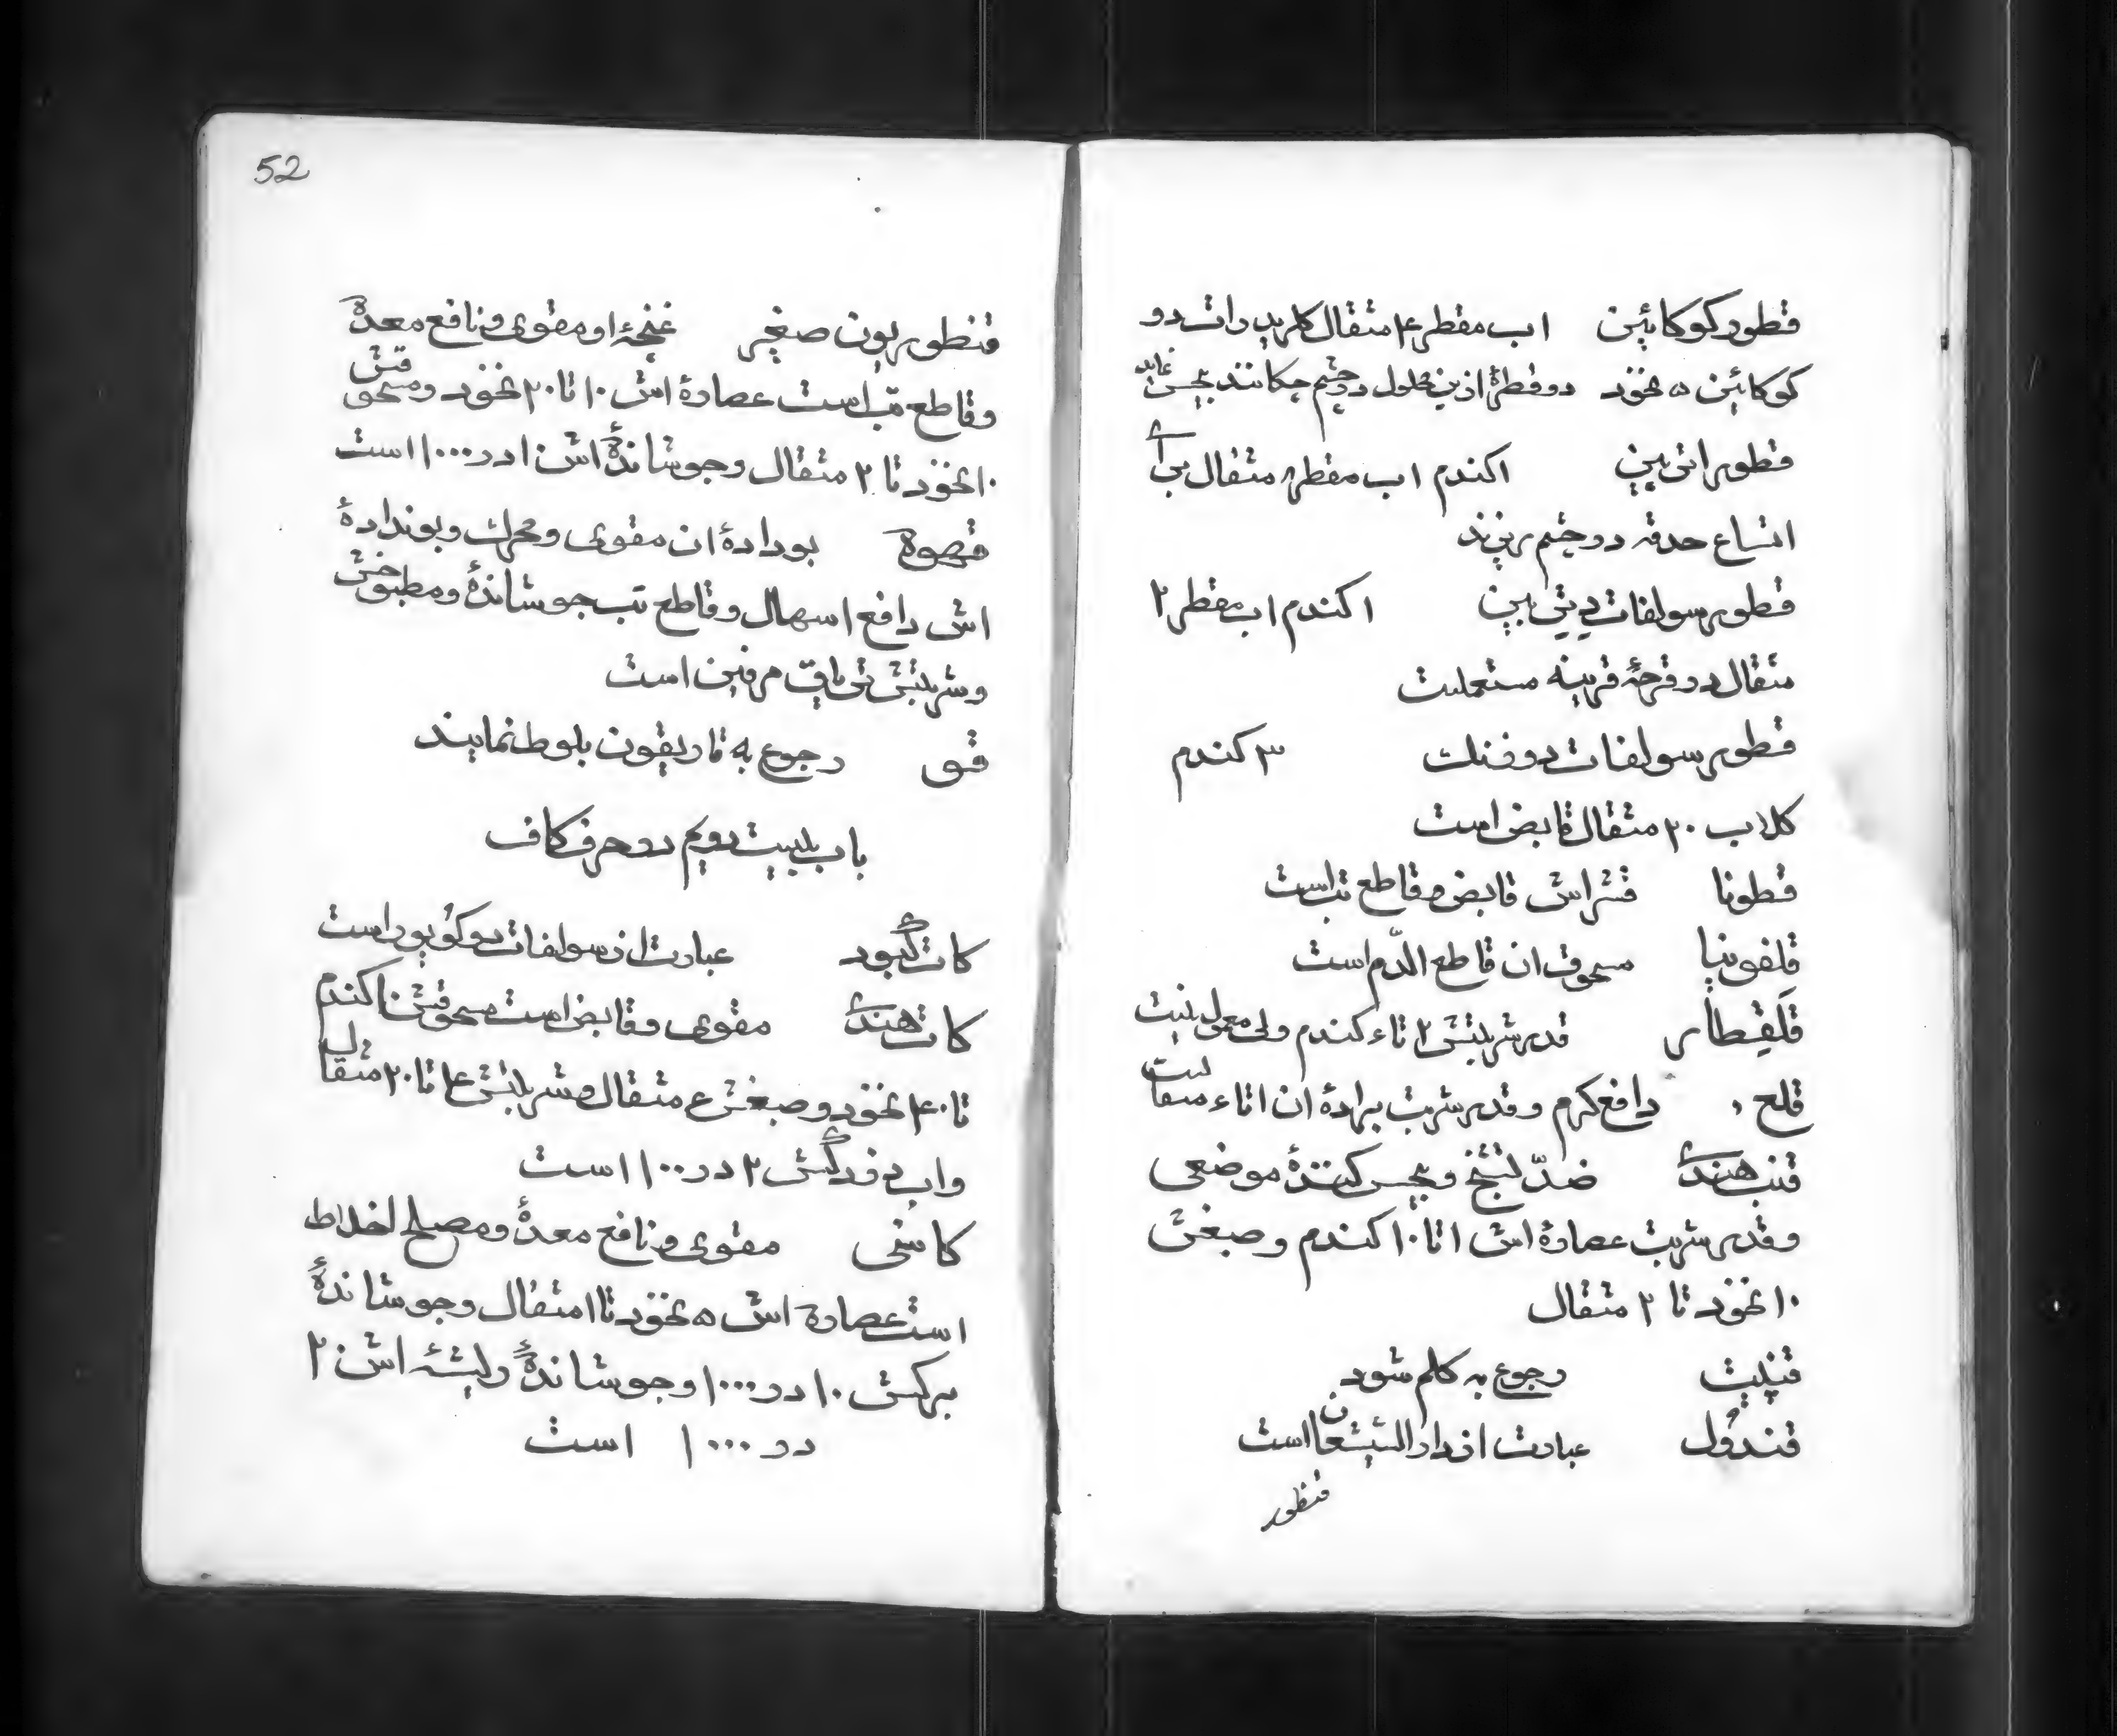 قطور کوکائین اب مقطر ۴ مثقال کلریدرات دو
کوکائین ۵ نخود دو قطرهٔ ازین محلول در چشم چکانند بیحس نماید
قطور اتی پین ۱ کندم اب مقطر مثقال برای
اتساع حدقه در چشم بریزند
قطور سولفات دیتی پین ۱ کندم اب مقطر ۲
مثقال در قرحهٔ قرینه مستعملست
قطور سولفات دو فنک ۳ کندم
کلاب ۲۰ مثقال قابض است
قطونا قشر اش قابض و قاطع تب است
قلفونیا مسحوق ان قاطع الدّم است
قلقیطار قدر شربتش ۲ تا ۴ کندم ولی معمول نیست
قلع دافع کرم و قدر شربت برادهٔ ان ۱ تا ۴ مثقالست
قنب هندی ضدّ تشنّج و بیحس کنندهٔ موضعی
و قدر شربت عصارهٔ اش ۱ تا ۱۰ کندم و صبغش
۱۰ نخود تا ۲ مثقال
قنبیت رجوع به کلم شود
قندول عبارت از دارالشیشعان است
قنطور
52
قنطوریون صغیر غنچهٔ او مقوی و نافع معدة
و قاطع تب است عصارهٔ اش ۱۰ تا ۲۰ نخود و مسحوقش
۱۰ نخود تا ۲ مثقال و جوشاندهٔ اش ۱۰ در ۱۰۰۰ است
قهوة بودادهٔ ان مقوی و محرک و بوندادهٔ
اش دافع اسهال و قاطع تب جوشاندهٔ و مطبوخش
و شربتش تریاق مرفین است
قو رجوع به قاریقون بلوط نمایند
باب بیست دویم در حرف کاف
کات کبود عبارت از سولفات دو کویور است
کات هندی مقوی و قابض است مسحوقش ۱۰ کندم
تا ۴۰ نخود و صبغش ۴ مثقال و شربتش ۴ تا ۲۰ مثقال
و اب دزدکش ۲ در ۱۰۰ است
کاسنی مقوی و نافع معدهٔ و مصلح اخلاط
است عصارة اش ۵ نخود تا ۱ مثقال و جوشاندهٔ
برکش ۱۰ در ۱۰۰۰ و جوشاندهٔ ریشهٔ اش ۲۰
در ۱۰۰۰ است